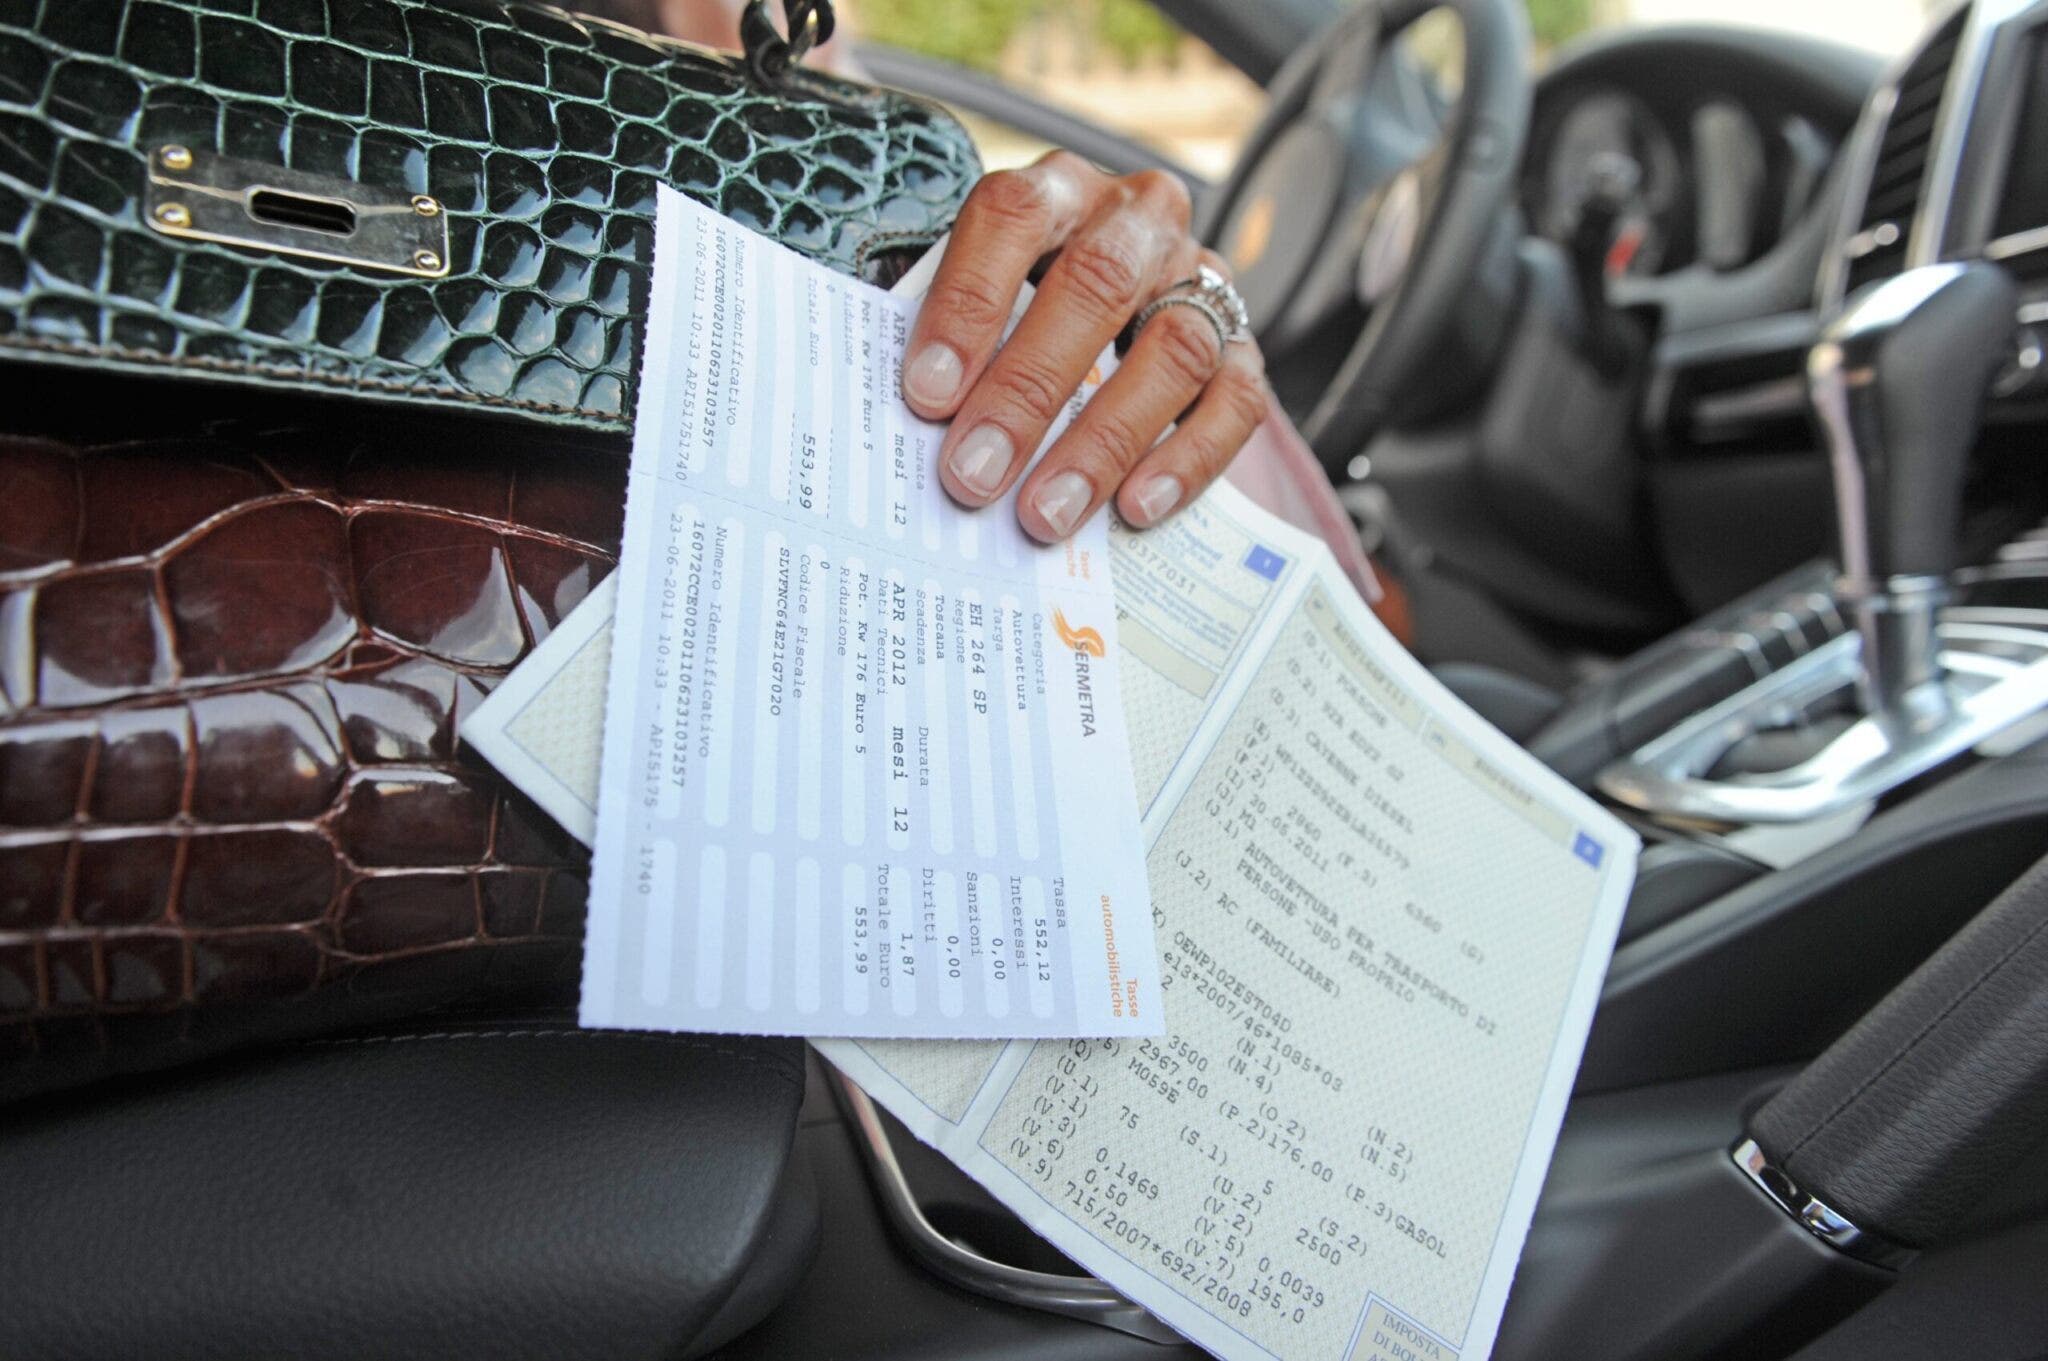 Numero Identificativo
16072CCE0020110623103257
23-06-2011 10:33 API51751740
Totale Euro
553,99
0
Riduzione
Pot. Kw 176 Euro 5
Dati Tecnici
APR 2012 mesi 12
Durata
SERMETRA
Tasse
automobilistiche
Categoria
Autovettura
Targa
EH 264 SP
Regione
Toscana
Scadenza Durata
APR 2012 mesi 12
Dati Tecnici
Pot. Kw 176 Euro 5
Riduzione
0
Codice Fiscale
SLVFNC64E21G702O
Numero Identificativo
16072CCE0020110623103257
23-06-2011 10:33 - API5175 - 1740
Tassa
552,12
Interessi
0,00
Sanzioni
0,00
Diritti
1,87
Totale Euro
553,99
(D.1) PORSCHE
(D.2)
(D.3) CAYENNE DIESEL
(E)
(F.1)
(F.2) 2860 (F.3) 6360 (G)
(I) 30.05.2011
(J) M1 AUTOVETTURA PER TRASPORTO DI
(J.1) PERSONE -USO PROPRIO
(J.2) AC (FAMILIARE)
(K) OEWP102EST04D
e13*2007/46*1085*03
2
3500 (N.1) (N.2)
(N.4) (N.5)
2967,00 (O.2)
M059E (P.2)176,00 (P.3)GASOL
(Q) (S.1) 5 (S.2)
(U.1) 75 (U.2) 2500
(V.1) (V.2)
(V.3) 0,1469 (V.5) 0,0039
(V.6) 0,50 (V.7) 195,0
(V.9) 715/2007*692/2008
IMPOSTA